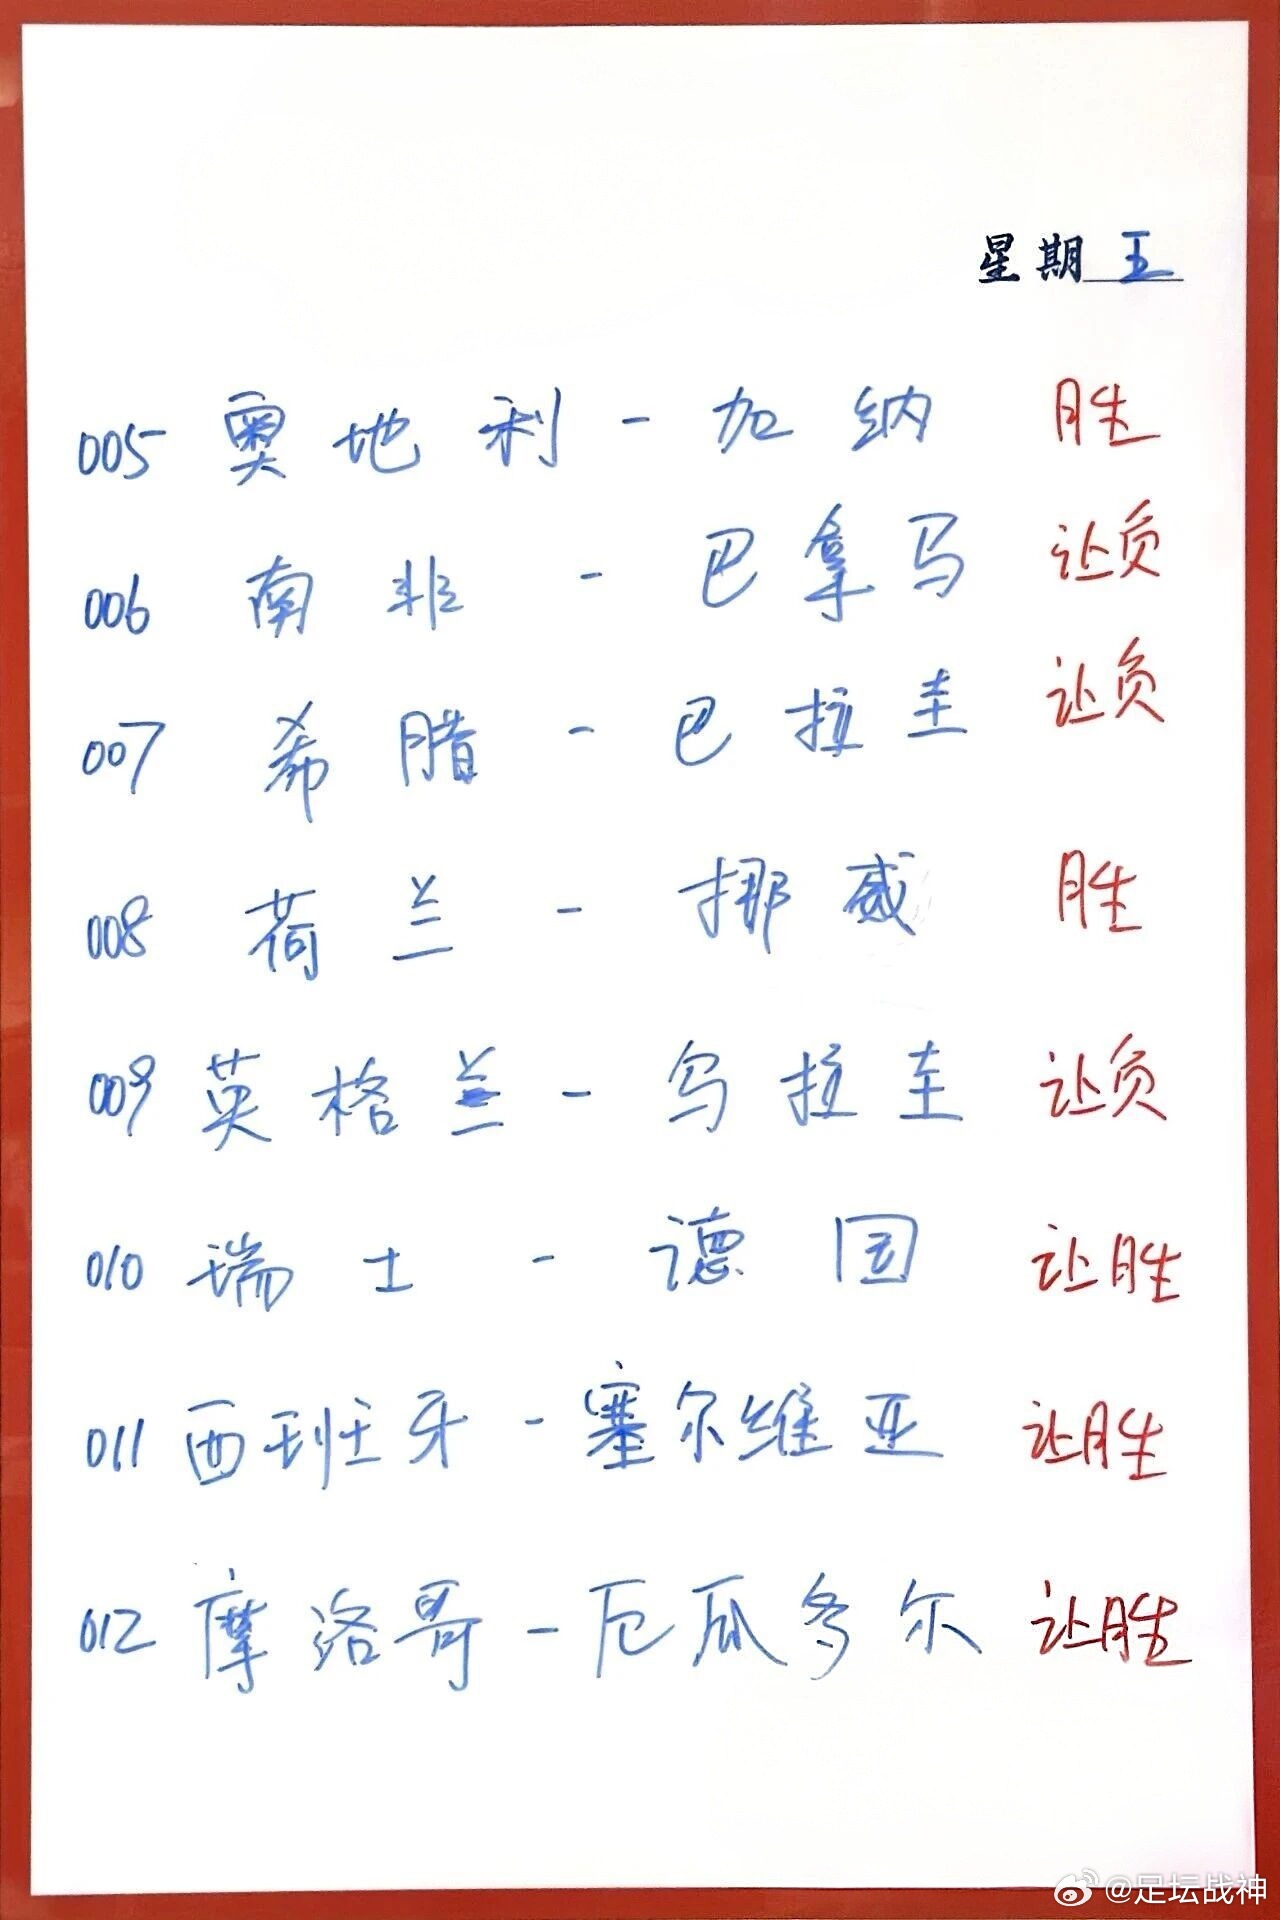 星期五
005 奥地利 - 加纳 胜
006 南非 - 巴拿马 让负
007 希腊 - 巴拉圭 让负
008 荷兰 - 挪威 胜
009 英格兰 - 乌拉圭 让负
010 瑞士 - 德国 让胜
011 西班牙 - 塞尔维亚 让胜
012 摩洛哥 - 厄瓜多尔 让胜
@足坛战神